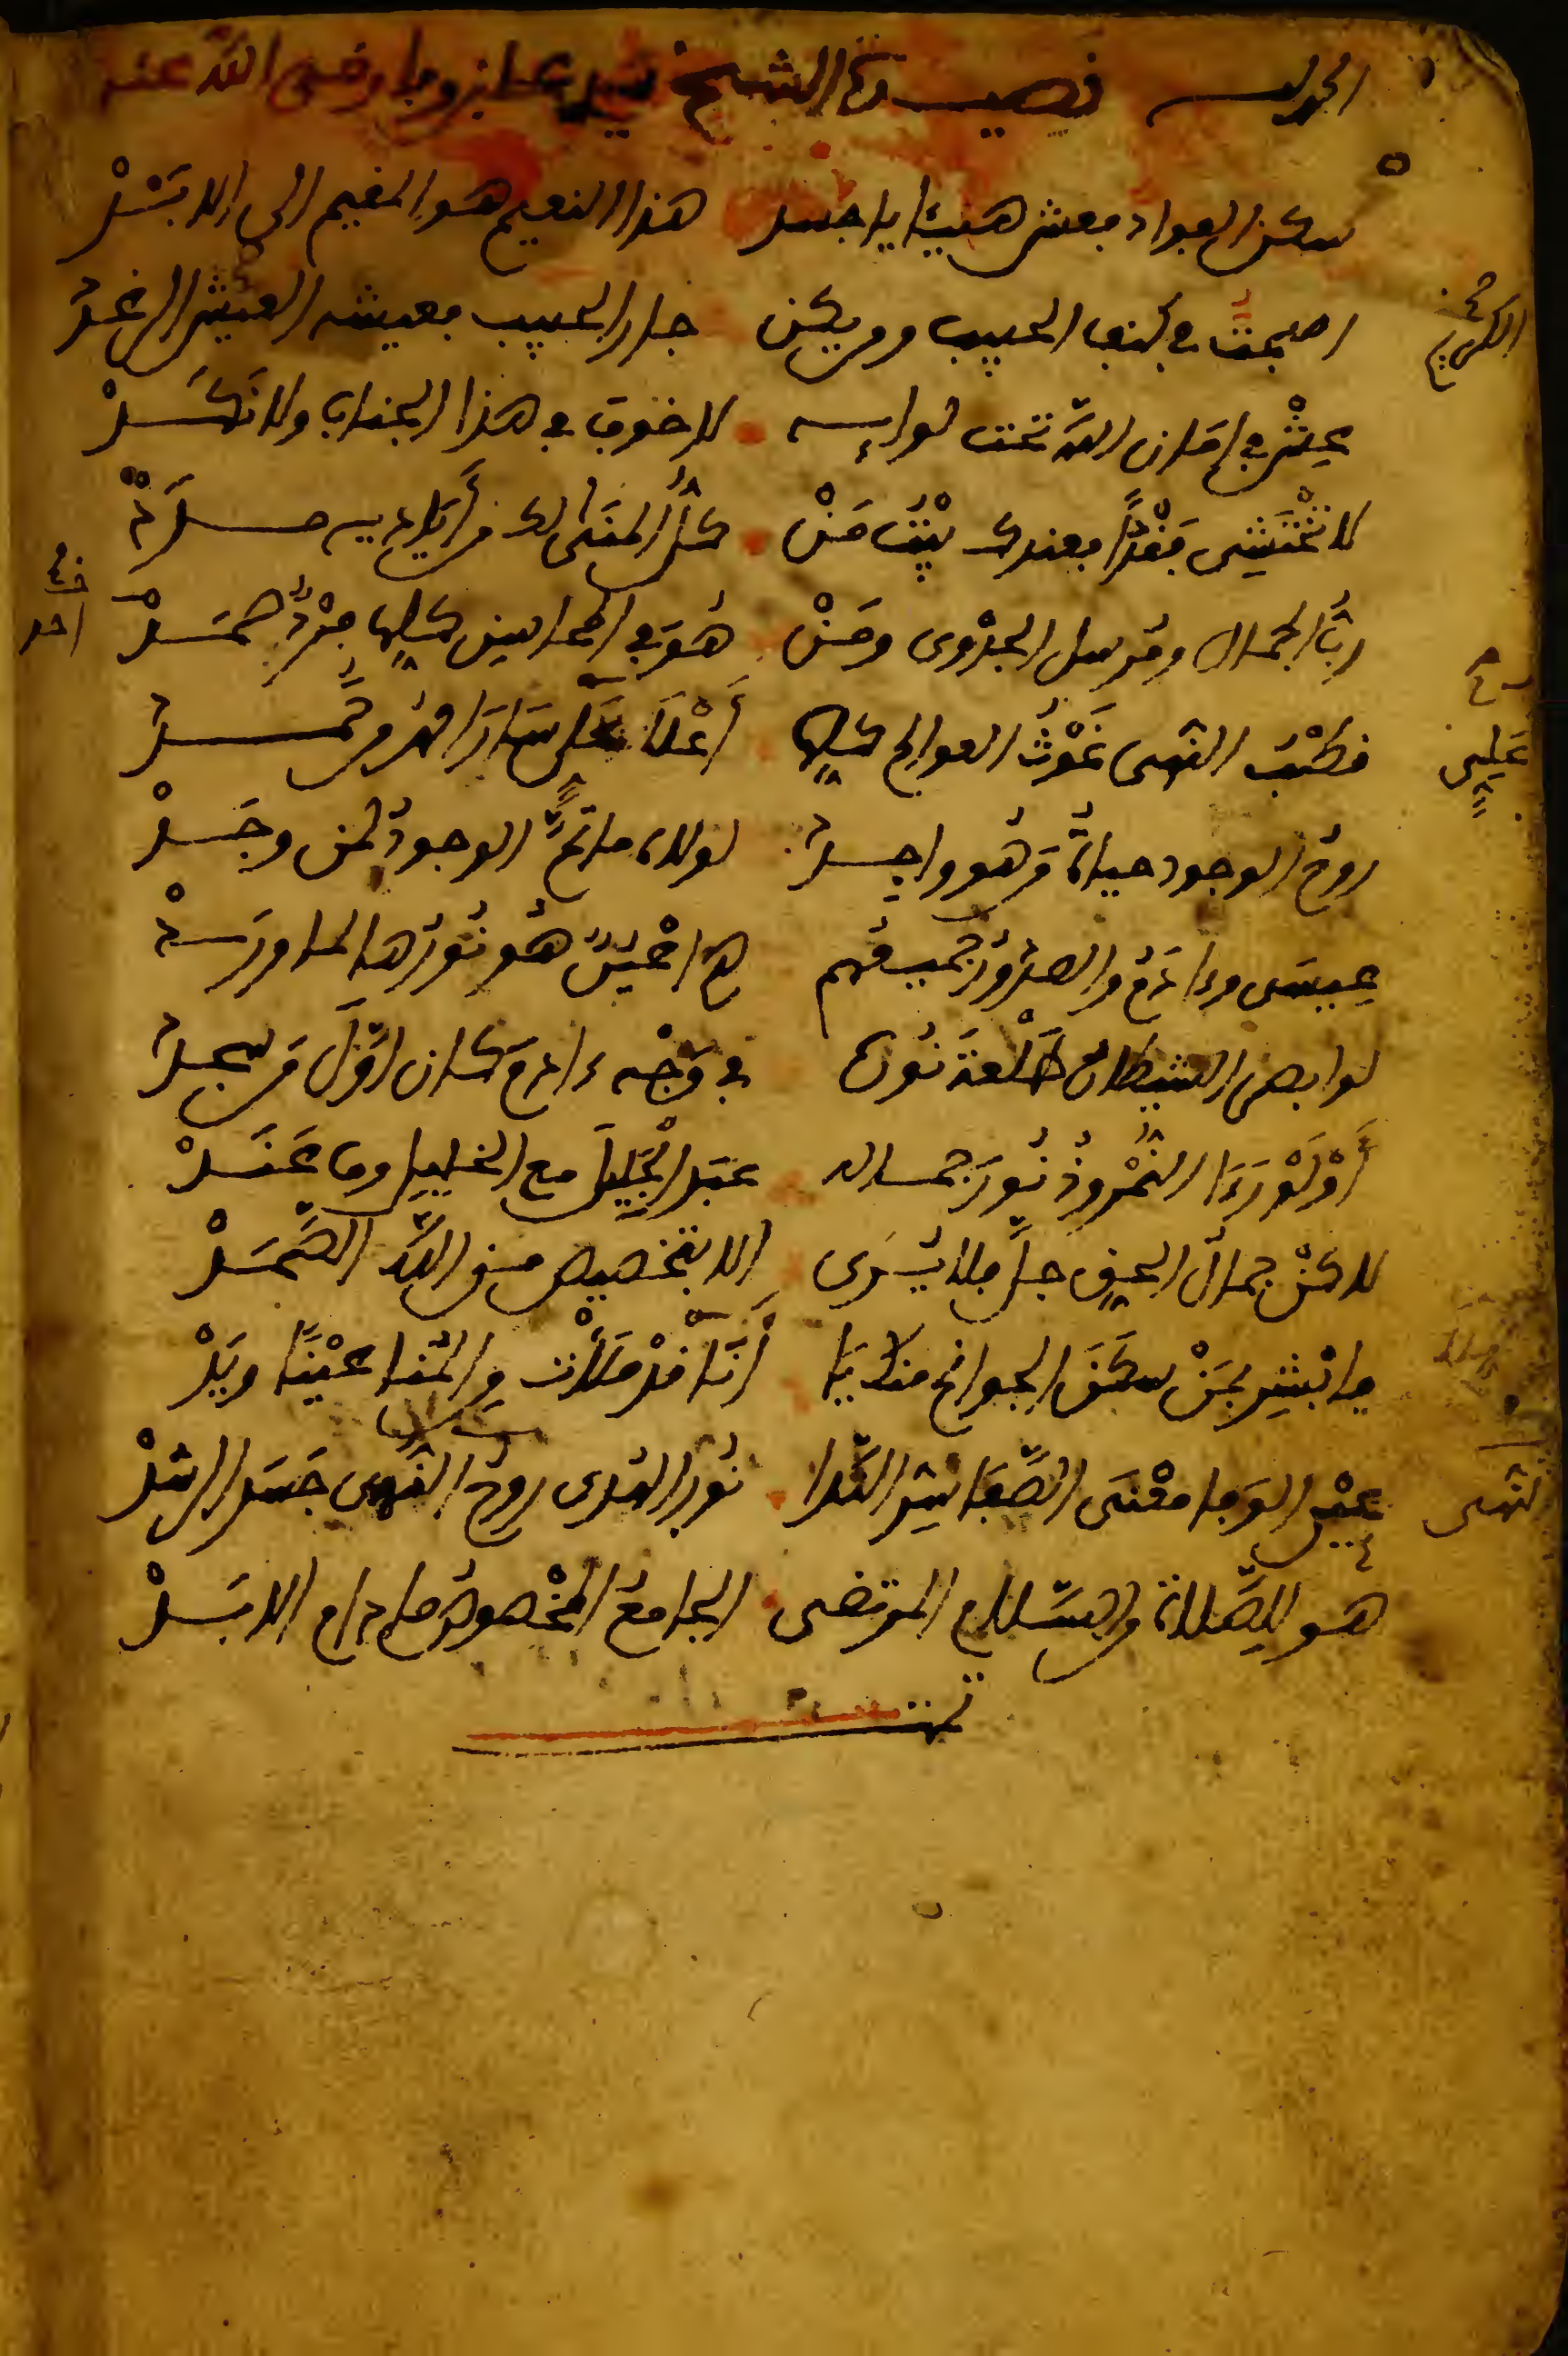 الحمد لله قصيدة الشيخ سيد علي بن وفا رضي الله عنه
سكن الفواد فعش هنيئا يا جسد هذا النعيم هو المقيم الى الابَدْ
اصبحت في كنف الحبيب ومن يكن جار الحبيب فعيشه العيش الرغدْ
عِشْ في امَان الله تحت لوايِه لا خوف في هذا الجناب ولا نَكَدْ
لا تخْتَشِي فَقْرًا فعندك بيْتُ مَنْ كلُّ المنَى لك من أَيَاديه مدَدْ
ربُّ الجمال ومُرسل الجدْوى ومَنْ هُوَ في المحاسن كلها فرْدٌ صمَدْ
قطْبُ النهى غَوْثُ العوالم كلها أَعْلَا عَلي سَارَ احمدُ من حَمدْ
روحُ الوجود حياةُ مَن هو واجدْ لولاه ما تمَّ الوجودُ لمن وجَدْ
عيسَى وءادَمُ والصدُورُ جميعُهم هم اعْيُنٌ هُو نُورُها لما وَرَدْ
لو ابصر الشيطان طَلْعةَ نُوره في وَجْه ءادمَ كان اوّلَ مَن سجدْ
أَوْ لَوْ رَءَا النُّمْرُوذُ نُورَ جماله عبَد الْجَلِيلَ مع الخليل وما عَنَدْ
لاكنْ جمالُ الحق جلَّ فلا يُرَى الا بتخصيص من الله الصَّمَدْ
فابْشِر بمَنْ سكَنَ الجوانح منك يَا أَنَا قدْ مَلأْت من المُنا عيْنًا ويَدْ
عيْن الوَفا معْنَى الصَّفَا سِرّ النَّدا نُور الهُدى روحُ النُّهى جَسَد الرشدْ
هو للصَّلاة والسَّلام المرتضى الجامعُ المخْصوصُ ما دام الابَدْ
تمت
الكريم
احد
عَلي
النهى